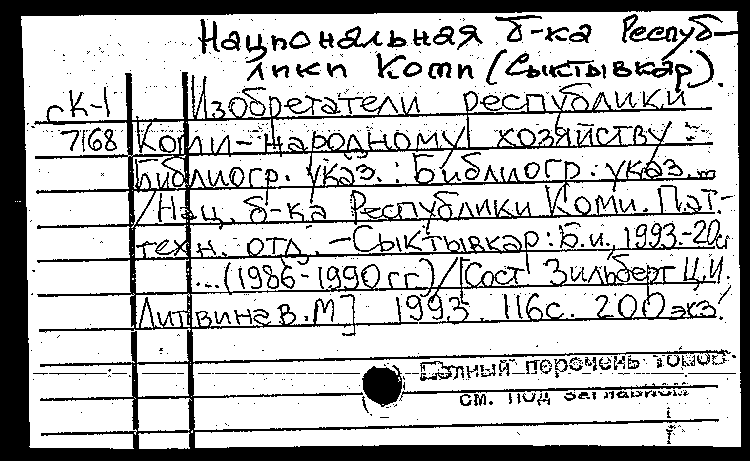 Национальная б-ка Респуб-
лики Коми (Сыктывкар).
сК-1 Изобретатели республики
7168 Коми-народному хозяйству :
Библиогр. указ. : Библиогр. указ.
/Нац. б-ка Республики Коми. Пат.-
техн. отд. -Сыктывкар: Б.и., 1993.-20см
...(1986-1990гг)/[Сост Зильберг Ц.И.
Литвина В.М] 1993. 116с. 200экз.
Полный перечень томов
см. под заглавием